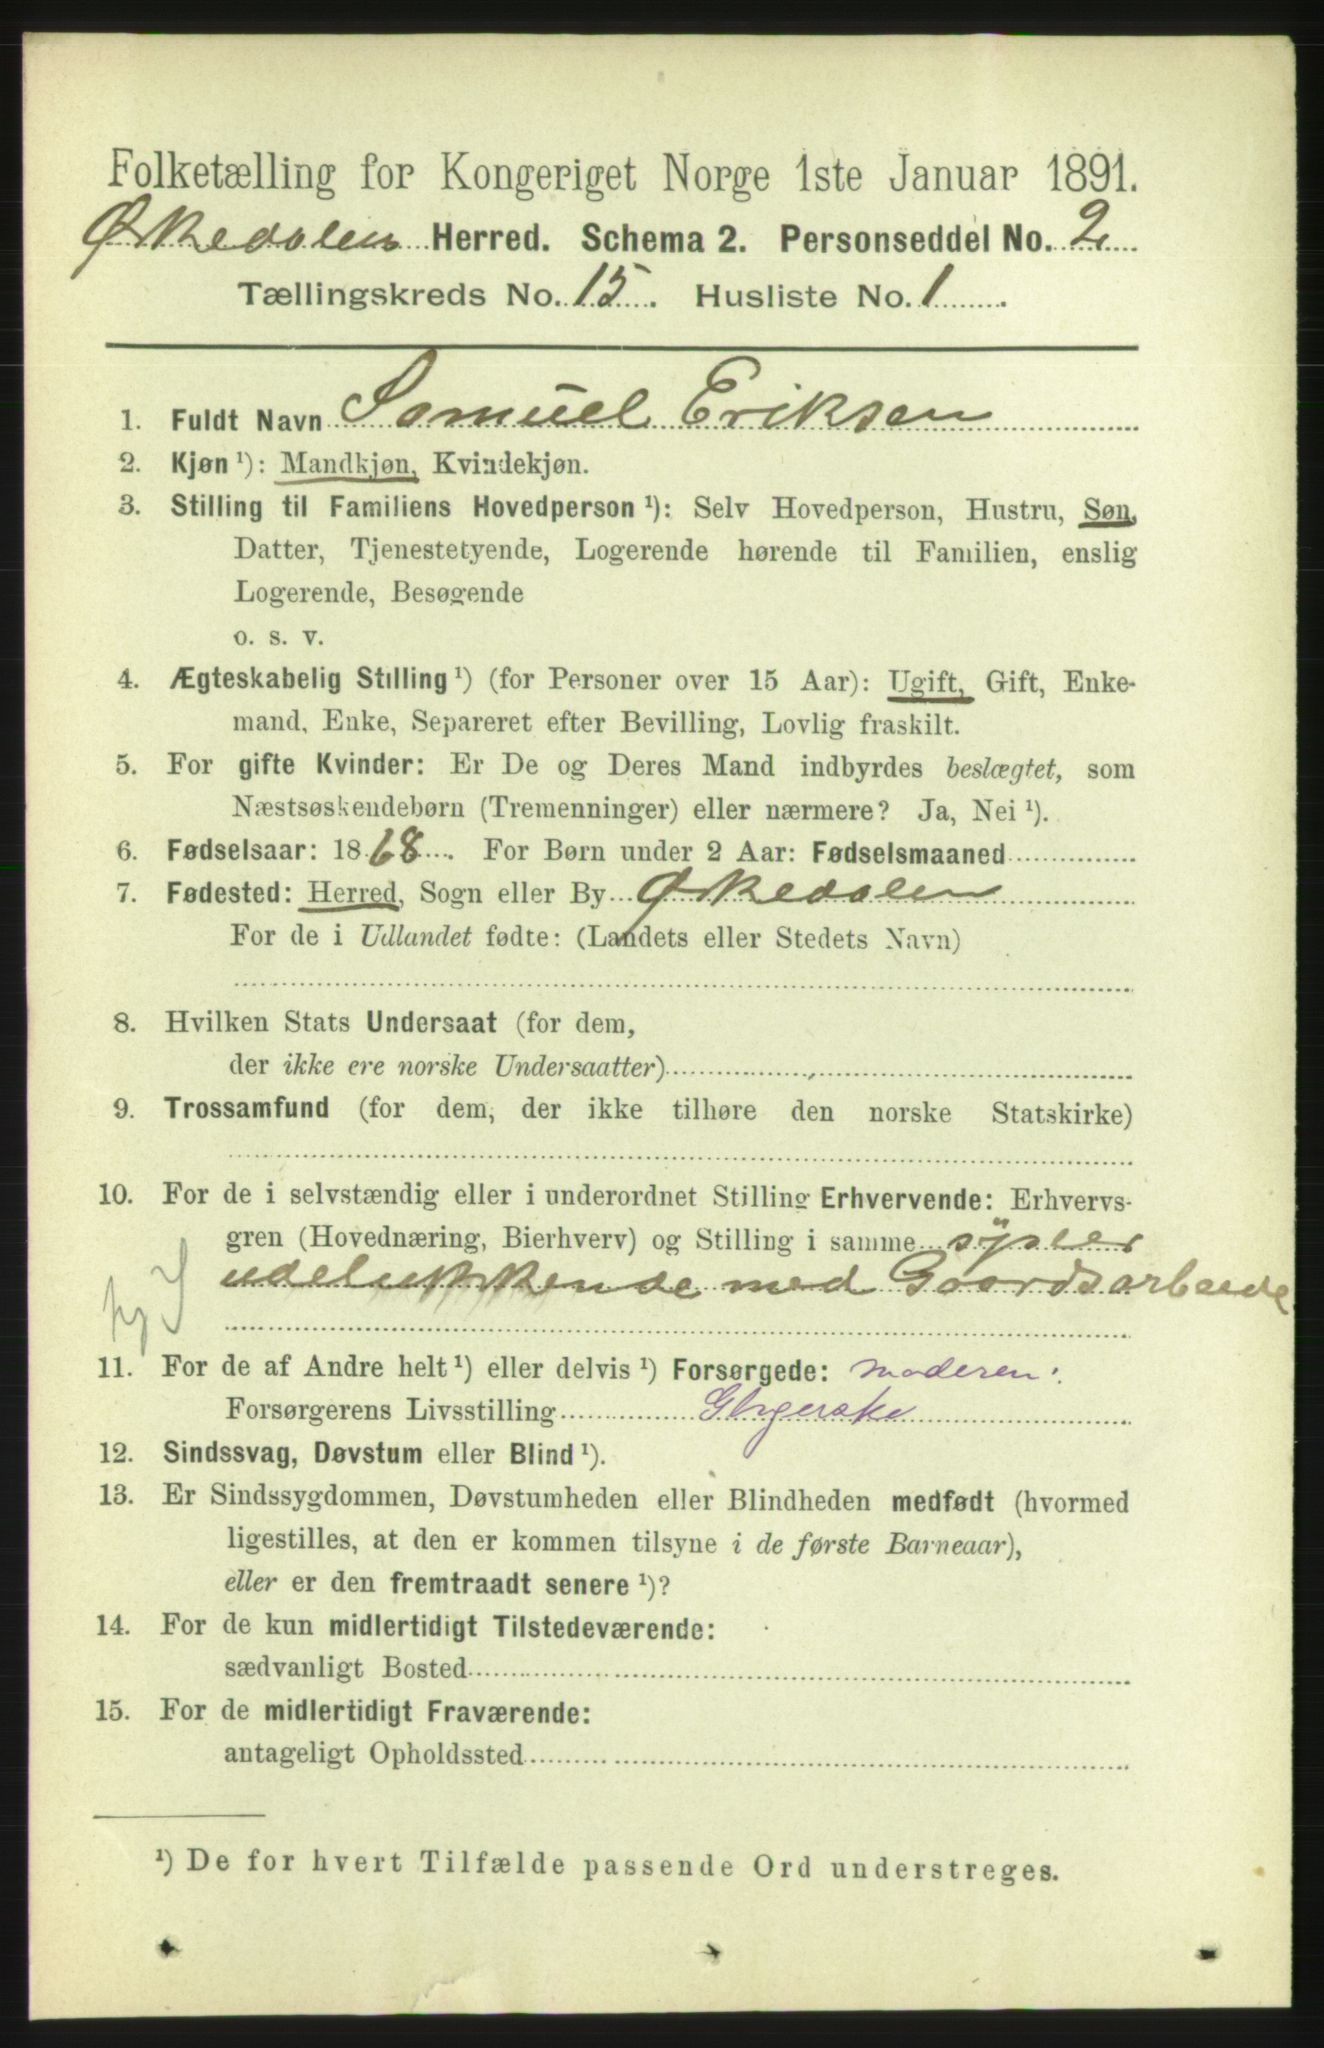 Folketælling for Kongeriget Norge 1ste Januar 1891.
Ørkedalens Herred. Schema 2. Personseddel No. 2
Tællingskreds No. 15. Husliste No. 1
1. Fuldt Navn Samuel Eriksen
2. Kjøn ¹): Mandkjøn, Kvindekjøn.
3. Stilling til Familiens Hovedperson ¹): Selv Hovedperson, Hustru, Søn,
Datter, Tjenestetyende, Logerende hørende til Familien, enslig
Logerende, Besøgende
o. s. v.
4. Ægteskabelig Stilling ¹) (for Personer over 15 Aar): Ugift, Gift, Enke-
mand, Enke, Separeret efter Bevilling, Lovlig fraskilt.
5. For gifte Kvinder: Er De og Deres Mand indbyrdes beslægtet, som
Næstsøskendebørn (Tremenninger) eller nærmere? Ja, Nei ¹).
6. Fødselsaar: 1868. For Børn under 2 Aar: Fødselsmaaned
7. Fødested: Herred, Sogn eller By Ørkedalen
For de i Udlandet fødte: (Landets eller Stedets Navn)
8. Hvilken Stats Undersaat (for dem,
der ikke ere norske Undersaatter)
9. Trossamfund (for dem, der ikke tilhøre den norske Statskirke)
10. For de i selvstændig eller i underordnet Stilling Erhvervende: Erhvervs-
gren (Hovednæring, Bierhverv) og Stilling i samme sysler
udelukkende med Gaardsarbeide
11. For de af Andre helt ¹) eller delvis ¹) Forsørgede: moderen:
Forsørgerens Livsstilling
12. Sindssvag, Døvstum eller Blind ¹).
13. Er Sindssygdommen, Døvstumheden eller Blindheden medfødt (hvormed
ligestilles, at den er kommen tilsyne i de første Barneaar),
eller er den fremtraadt senere ¹)?
14. For de kun midlertidigt Tilstedeværende:
sædvanligt Bosted
15. For de midlertidigt Fraværende:
antageligt Opholdssted
¹) De for hvert Tilfælde passende Ord understreges.